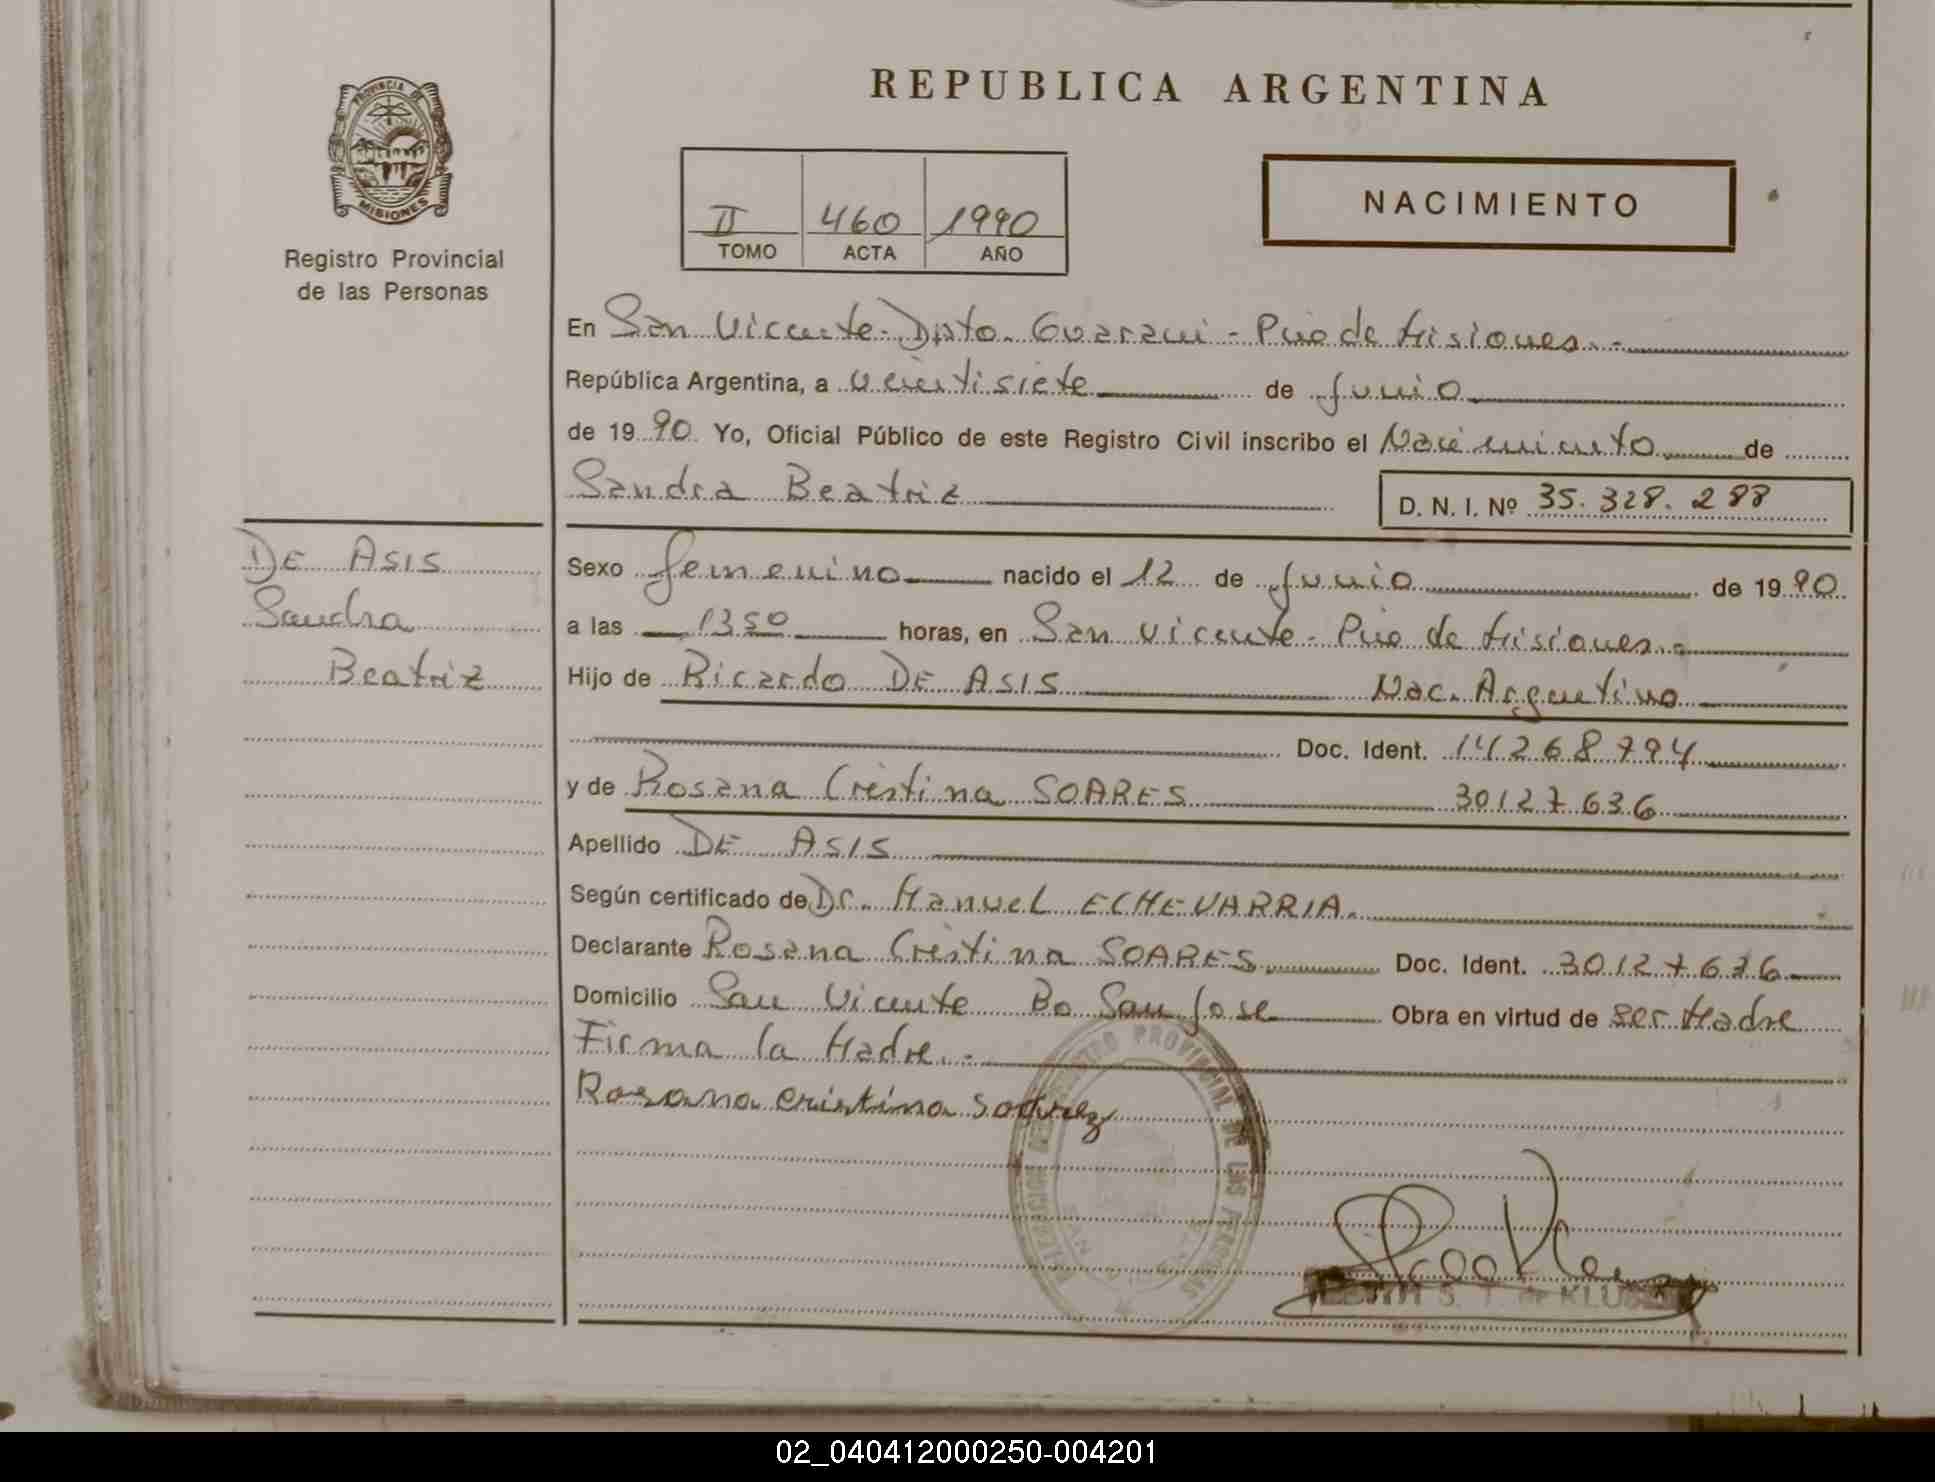 REPUBLICA ARGENTINA
PROVINCIA DE
MISIONES
Registro Provincial
de las Personas
II 460 1990
TOMO ACTA AÑO
NACIMIENTO
En San Vicente - Dpto. Guaraní - Pcia de Misiones. -
República Argentina, a veintisiete de Junio
de 1990 Yo, Oficial Público de este Registro Civil inscribo el Nacimiento de
Sandra Beatriz D. N. I. Nº 35.328.288
DE ASIS
Sandra
Beatriz
Sexo femenino nacido el 12 de Junio de 1990
a las 13 50 horas, en San Vicente - Pcia de Misiones. -
Hijo de Ricardo DE ASIS Nac. Argentino
Doc. Ident. 14268794
y de Rosana Cristina SOARES 30127636
Apellido DE ASIS
Según certificado de Dr. Manuel ECHEVARRIA.
Declarante Rosana Cristina SOARES Doc. Ident. 30127636
Domicilio San Vicente Bo San Jose Obra en virtud de ser Madre
Firma la Madre. -
Rosana cristina
PROVINCIAL DE LAS PERSONAS
S. T. de
02_040412000250-004201